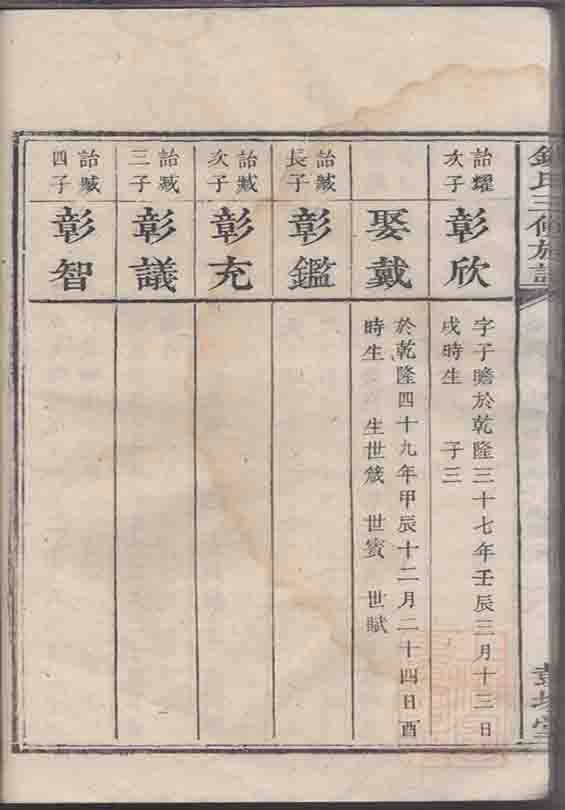 氏三修族譜
詒耀
次子
彰欣
字子瞻於乾隆三十七年壬辰三月十三日
戌時生 子三
娶戴
於乾隆四十九年甲辰十二月二十四日酉
時生 生世箴 世賓 世賦
詒臧
長子
彰鑑
詒臧
次子
彰充
詒臧
三子
彰議
詒臧
四子
彰智